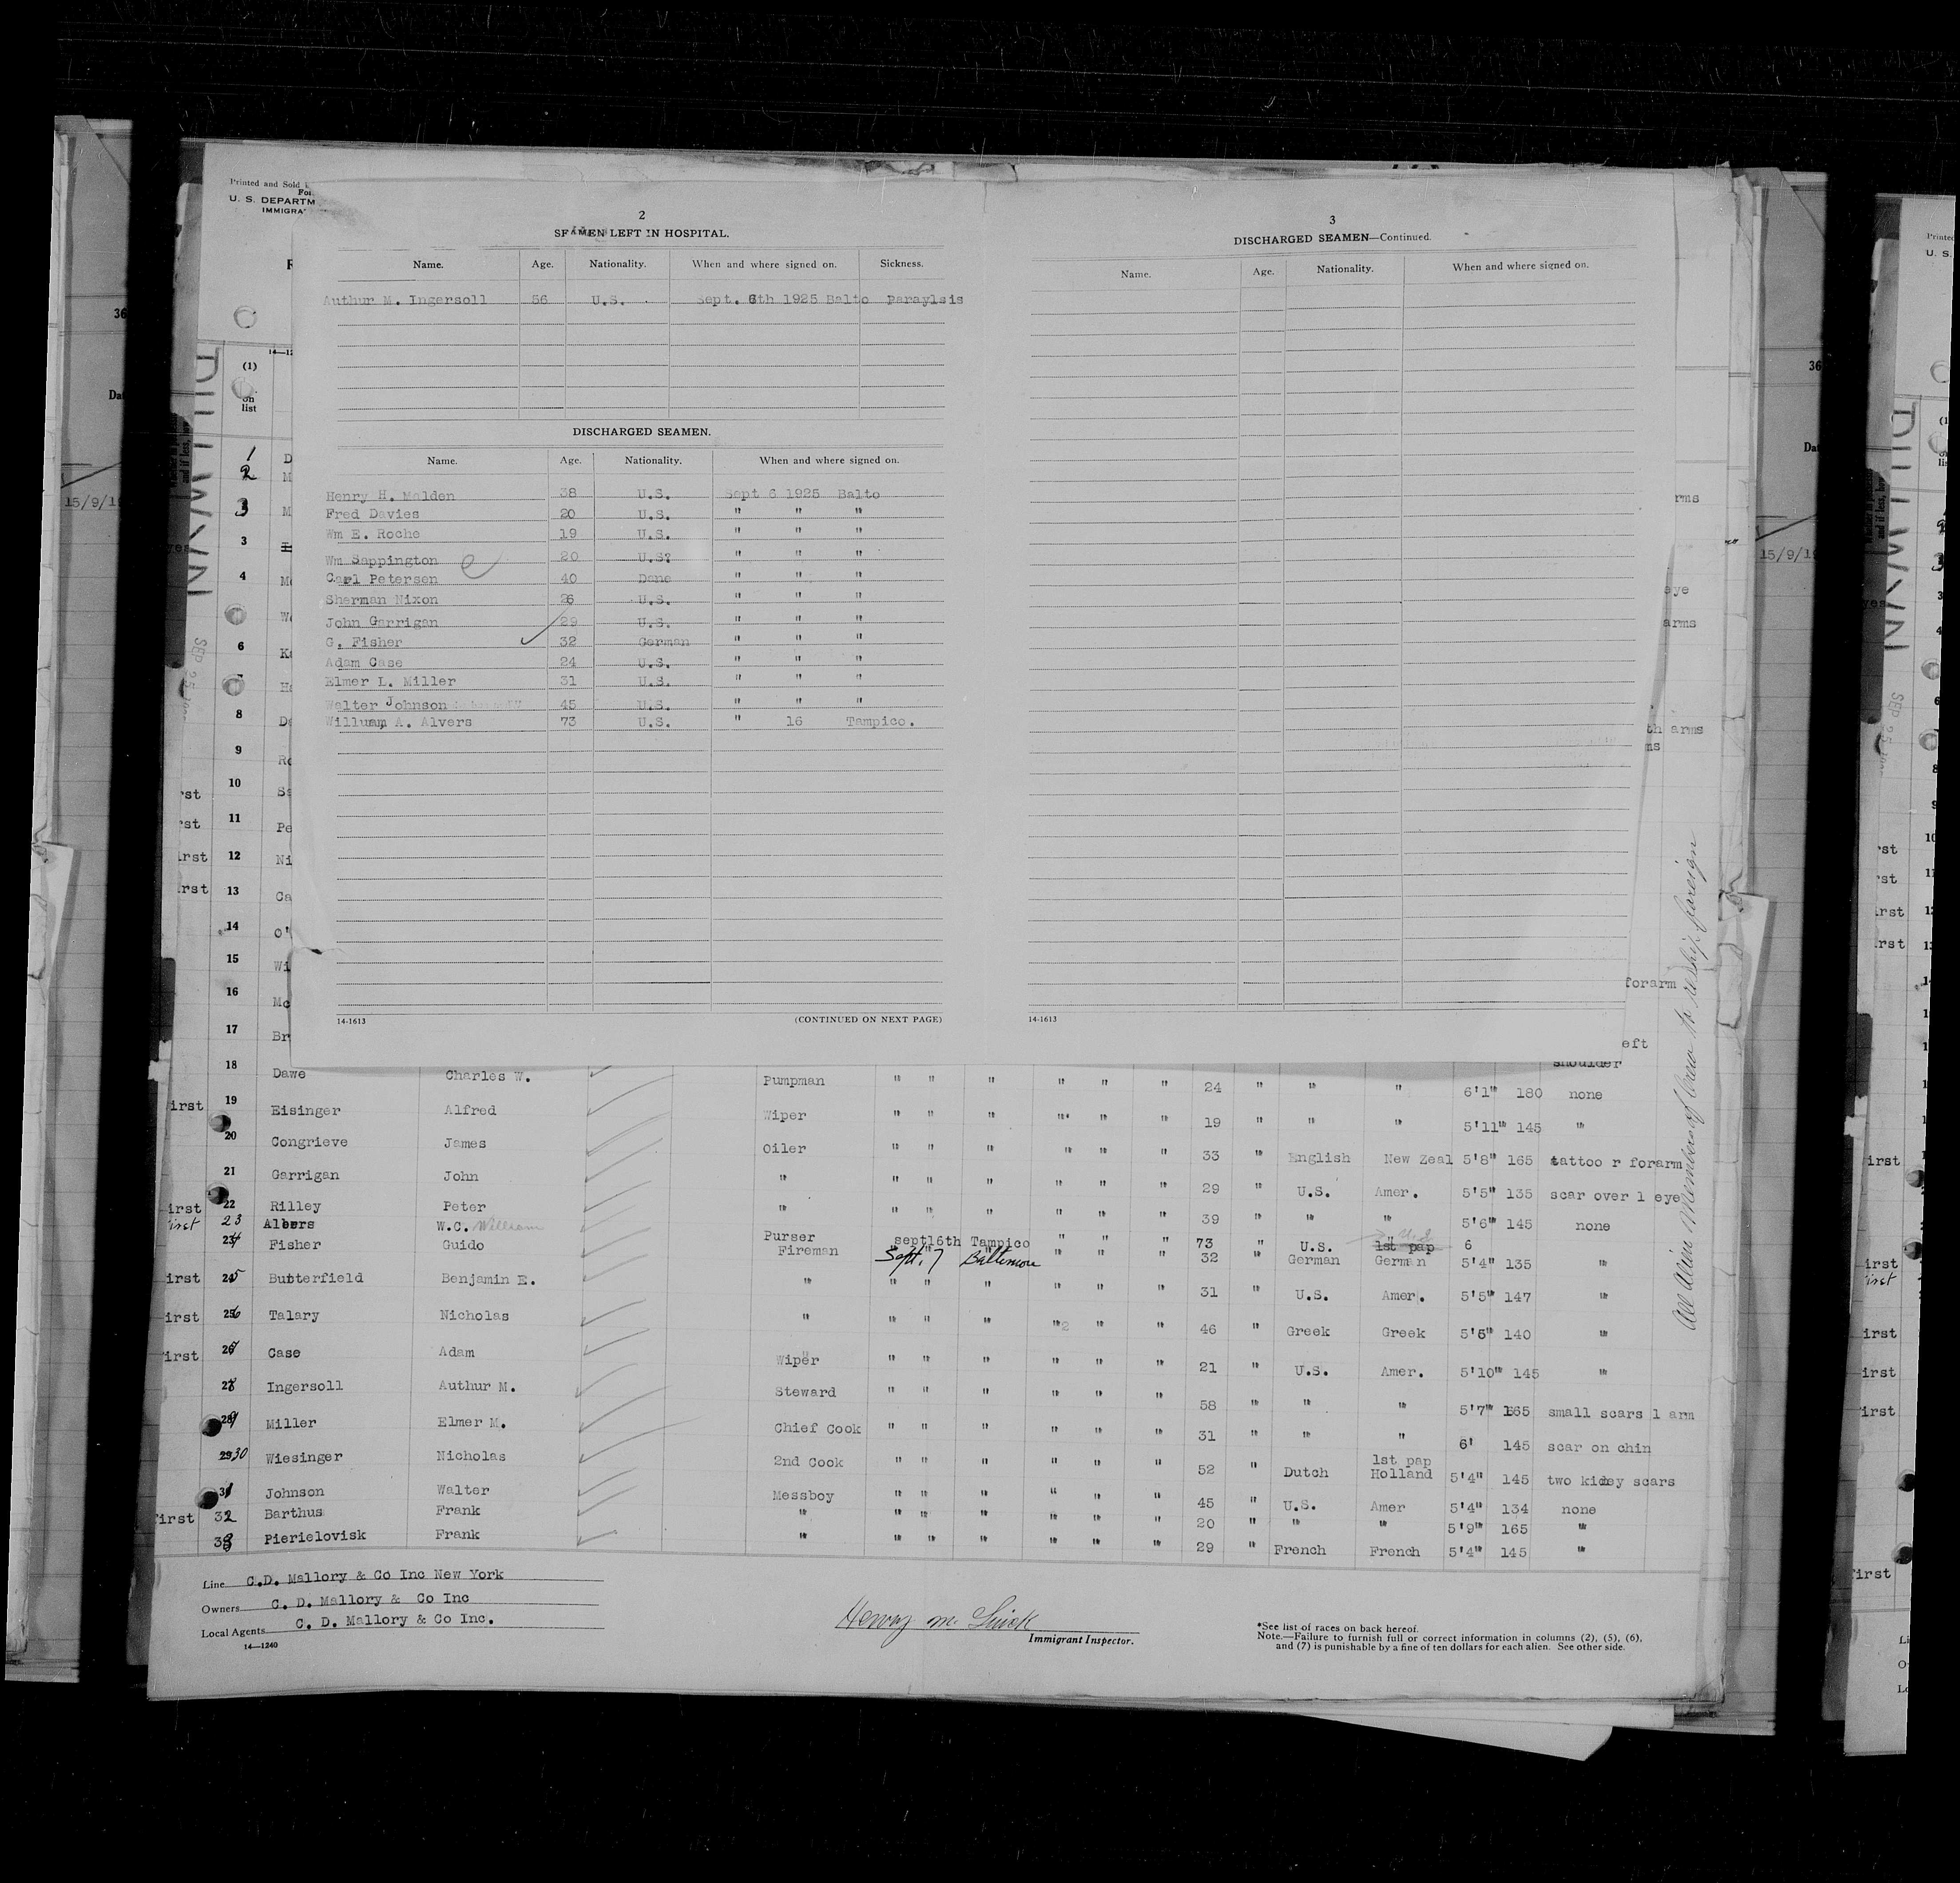 Printed and Sold
U. S. DEPARTM
IMMIGRA
2
SEAMEN LEFT IN HOSPITAL.
Name. Age. Nationality. When and where signed on. Sickness.
Authur M. Ingersoll 56 U.S. Sept. 6th 1925 Balto Paraylsis
DISCHARGED SEAMEN.
Name. Age. Nationality. When and where signed on.
Henry H. Malden 38 U.S. Sept 6 1925 Balto
Fred Davies 20 U.S. " " "
Wm E. Roche 19 U.S. " " "
Wm Sappington 20 U.S? " " "
Carl Petersen 40 Dane " " "
Sherman Nixon 26 U.S. " " "
John Garrigan 29 U.S. " " "
G. Fisher 32 German " " "
Adam Case 24 U.S. " " "
Elmer L. Miller 31 U.S. " " "
Walter Johnson 45 U.S. " " "
Willuam A. Alvers 73 U.S. " 16 Tampico.
14-1613 (CONTINUED ON NEXT PAGE)
3
DISCHARGED SEAMEN—Continued.
Name. Age. Nationality. When and where signed on.
14-1613
(1)
on
list
DILLWYN
SEP 25
15/9/19
1 D
2 M
3 M
3
4 Mc
W
6 K
H
8 De
9 Ro
10 Se
11 Pe
12 Ni
13 Ca
14 O'
15 Wi
16 Mc
17 Br
rms
eye
arms
th arms
ms
forarm
eft
shoulder
18 Dawe Charles W. Pumpman " " " " " " 24 " " " 6'1" 180 none
irst 19 Eisinger Alfred Wiper " " " " " " 19 " " " 5'11" 145 "
20 Congrieve James Oiler " " " " " " 33 " English New Zeal 5'8" 165 tattoo r forarm
21 Garrigan John " " " " " " " 29 " U.S. Amer. 5'5" 135 scar over l eye
irst 22 Rilley Peter " " " " " " " 39 " " " 5'6" 145 none
irst 23 Albers W.C. William Purser sept16th Tampico " " " 73 " U.S. 1st pap 6
24 Fisher Guido Fireman Sept. 7 Baltimore " " " 32 " German German 5'4" 135 "
irst 25 Butterfield Benjamin E. " " " " " " " 31 " U.S. Amer. 5'5" 147 "
irst 26 Talary Nicholas " " " " " " " 46 " Greek Greek 5'5" 140 "
irst 27 Case Adam Wiper " " " " " " 21 " U.S. Amer. 5'10" 145 "
28 Ingersoll Authur M. Steward " " " " " " 58 " " " 5'7" 165 small scars l arm
29 Miller Elmer M. Chief Cook " " " " " " 31 " " " 6' 145 scar on chin
30 Wiesinger Nicholas 2nd Cook " " " " " " 52 " Dutch 1st pap Holland 5'4" 145 two kidney scars
31 Johnson Walter Messboy " " " " " " 45 " U.S. Amer 5'4" 134 none
irst 32 Barthus Frank " " " " " " " 20 " " " 5'9" 165 "
33 Pierielovisk Frank " " " " " " " 29 " French French 5'4" 145 "
All Alien Members of Crew to reship foreign
Line C.D. Mallory & Co Inc New York
Owners C. D. Mallory & Co Inc
Local Agents C. D. Mallory & Co Inc.
14—1240
Immigrant Inspector.
*See list of races on back hereof.
Note.—Failure to furnish full or correct information in columns (2), (5), (6),
and (7) is punishable by a fine of ten dollars for each alien. See other side.